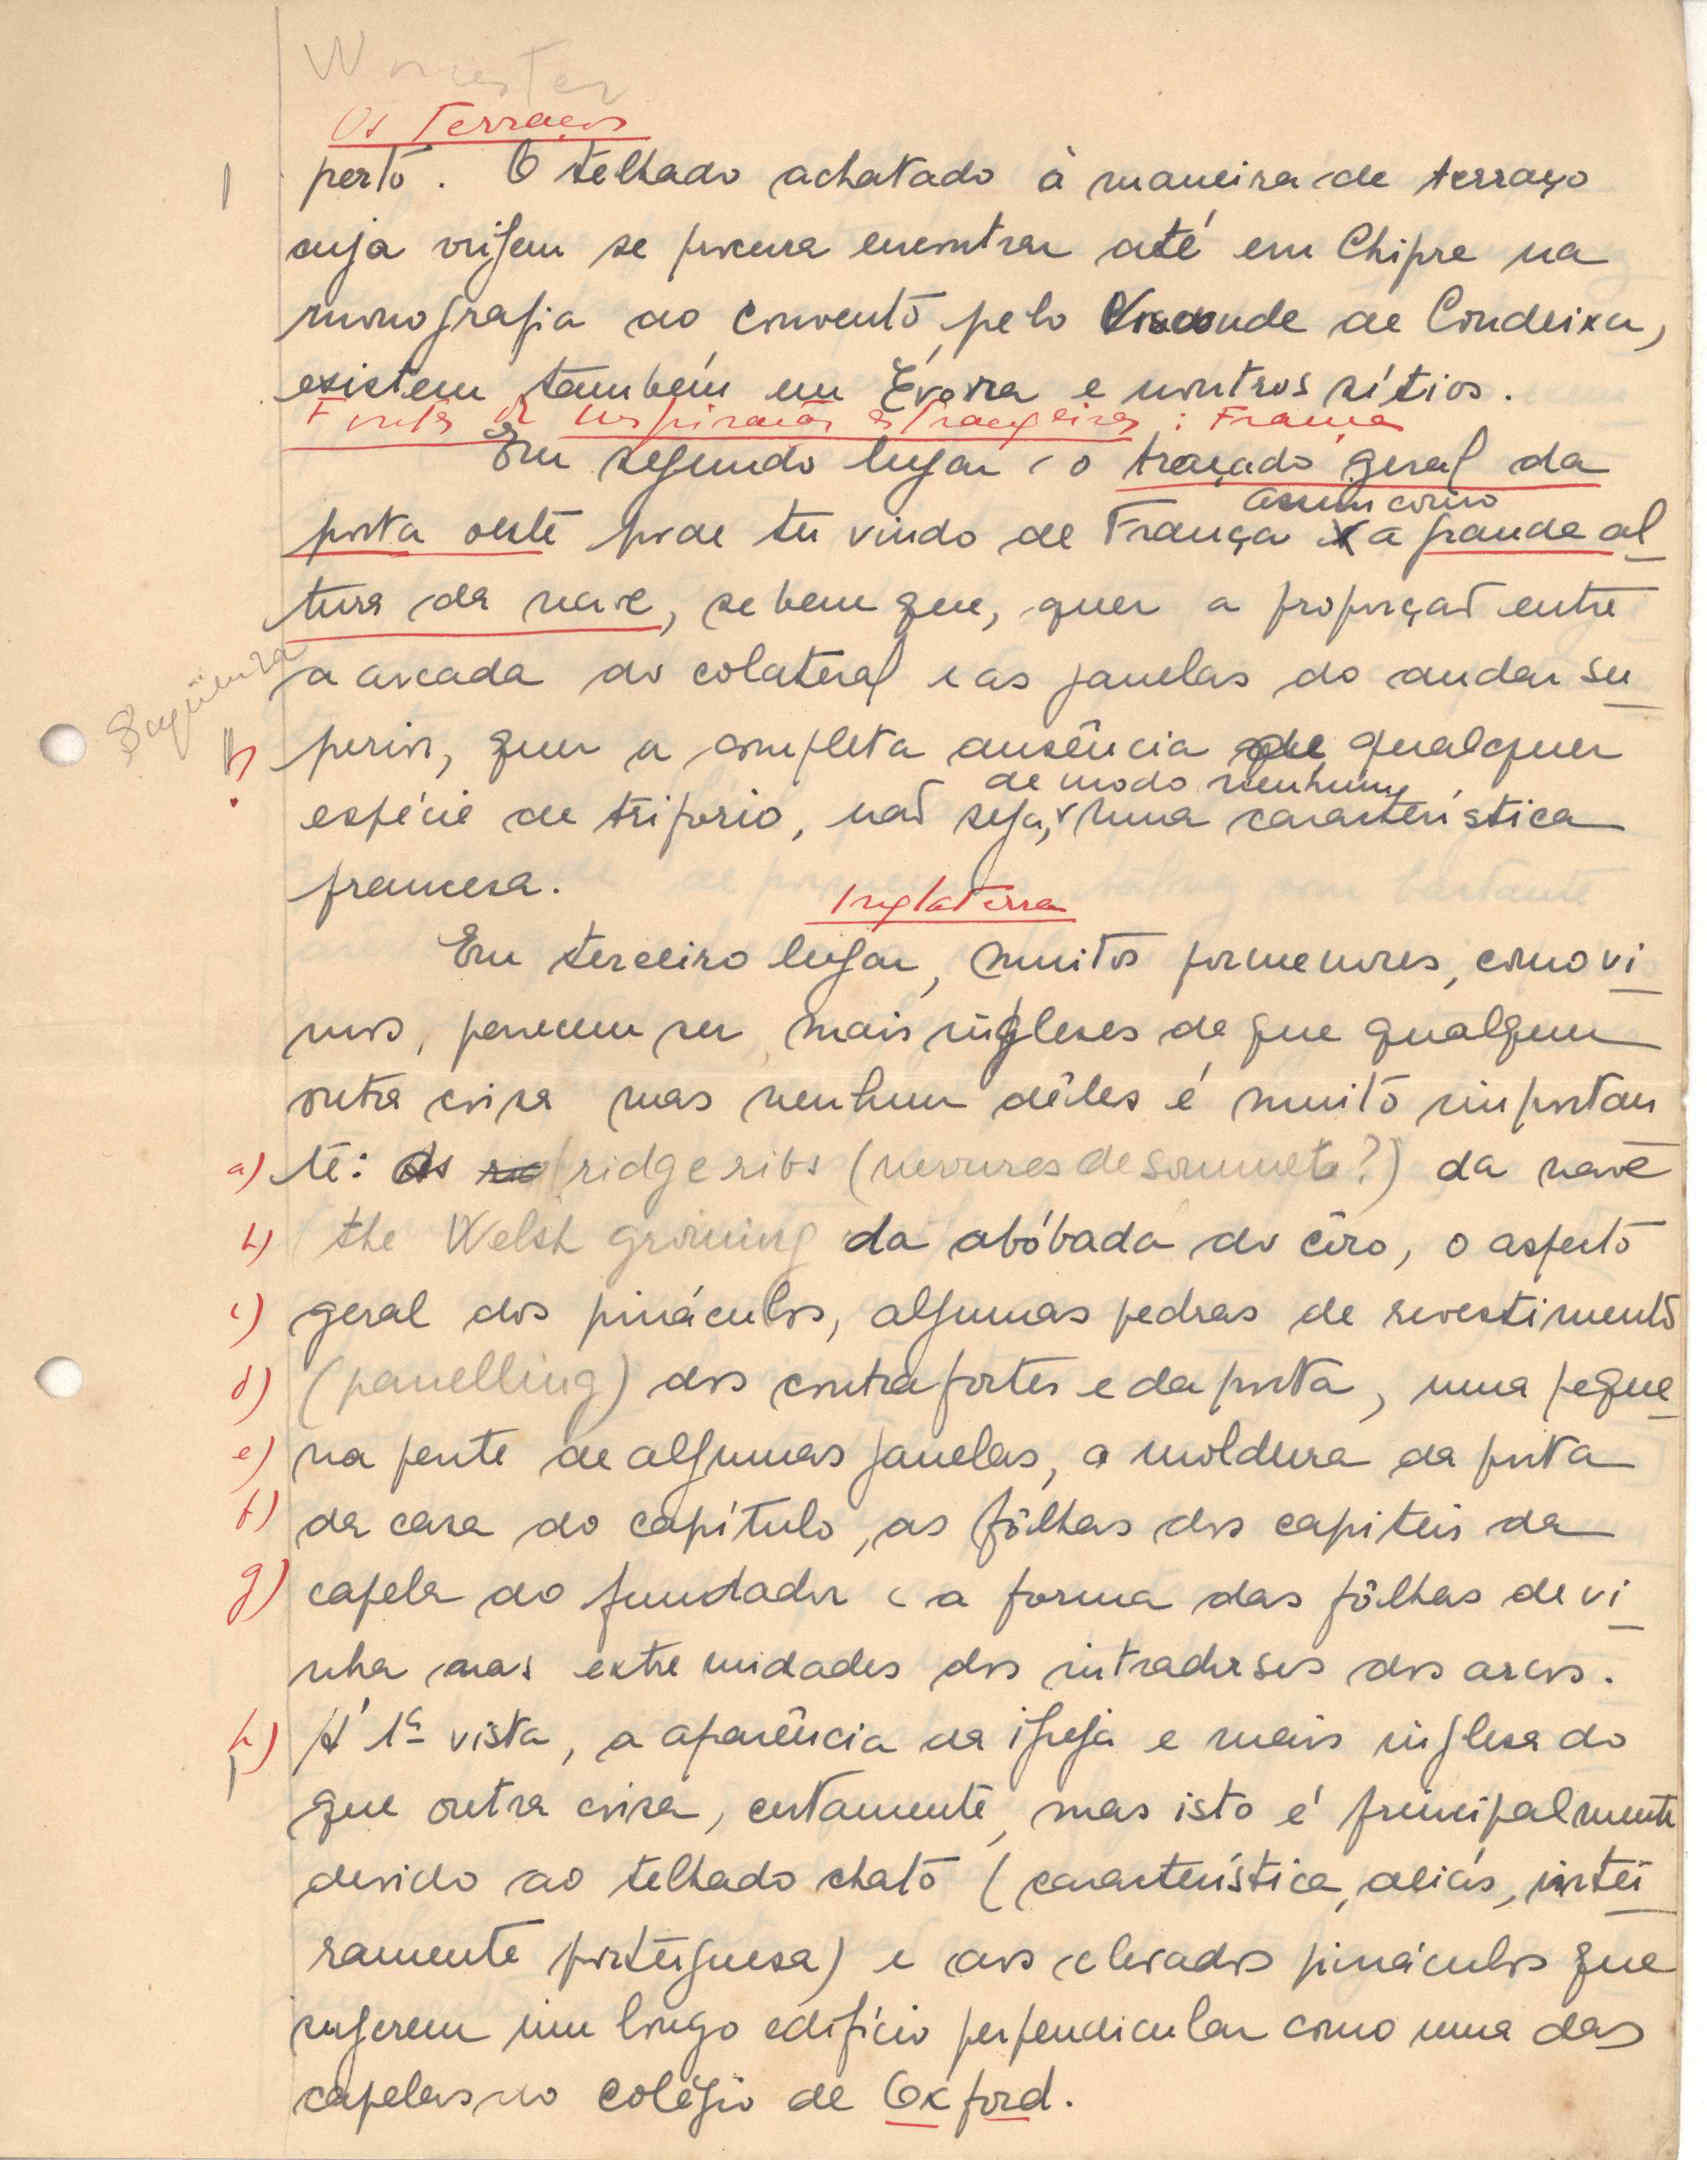 Worcester
Os Terraços
perto. O telhado achatado à maneira de terraço
cuja origem se procura encontrar até em Chipre na
monografia do convento pelo Visconde de Condeixa,
existem também em Évora e noutros sítios.
Fontes de inspiração estrangeira: França
Em segundo lugar, o traçado geral da
assim como
porta oeste pode ter vindo de França a grande al
tura da nave, se bem que, quer a proporção entre
a arcada do colateral e as janelas do andar su
Sigüenza
perior, quer a completa ausência de qualquer
de modo nenhum,
espécie de triforio, não seja, uma característica
francesa.
Inglaterra
Em terceiro lugar, muitos pormenores, como vi
mos, parecem ser mais inglêses do que qualquer
outra coisa mas nenhum dêles é muito importan
a) te: Os ridge ribs (nervures de sommets?) da nave
b) the Welsh groining da abóbada do côro, o aspecto
c) geral dos pináculos, algumas pedras de revestimento
d) (panelling) dos contrafortes e da porta, uma peque
e) na parte de algumas janelas, a moldura da porta
f) da casa do capítulo, as fôlhas dos capiteis da
g) capela do fundador e a forma das fôlhas de vi
nha nas extremidades dos intradorsos dos arcos.
h) Á 1ª vista, a aparência da igreja é mais inglesa do
que outra coisa, certamente, mas isto é principalmente
devido ao telhado chato (característica, aliás, intei
ramente portuguesa) e aos elevados pináculos que
sugerem um longo edifício perpendicular como uma das
capelas no colégio de Oxford.